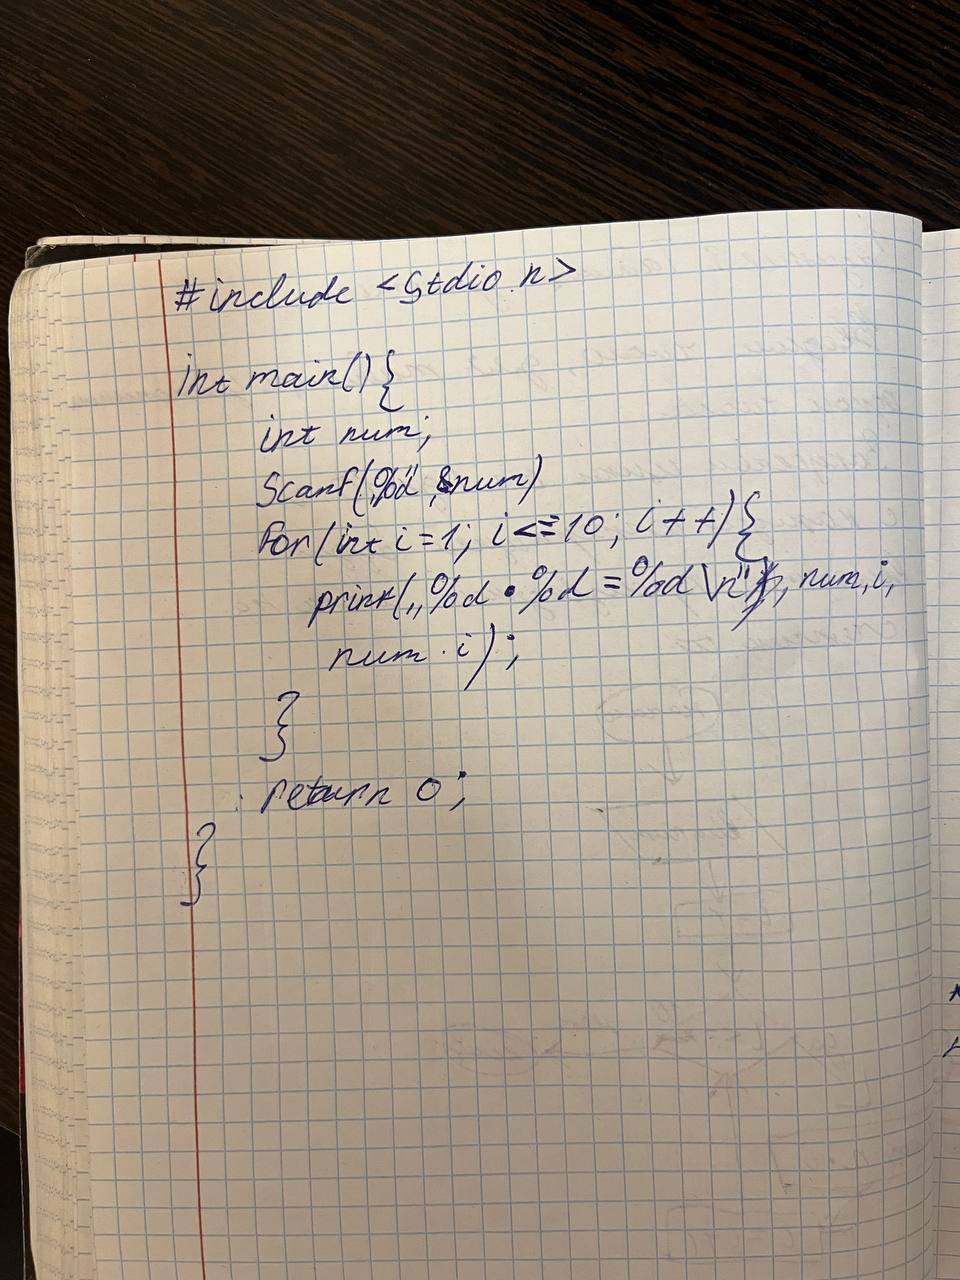 #include <Stdio.h>
int main(){
int num;
Scanf(„%d", &num)
for(int i=1; i<=10; i++){
print(„%d • %d = %d \n", num,i,
num · i);
}
return 0;
}